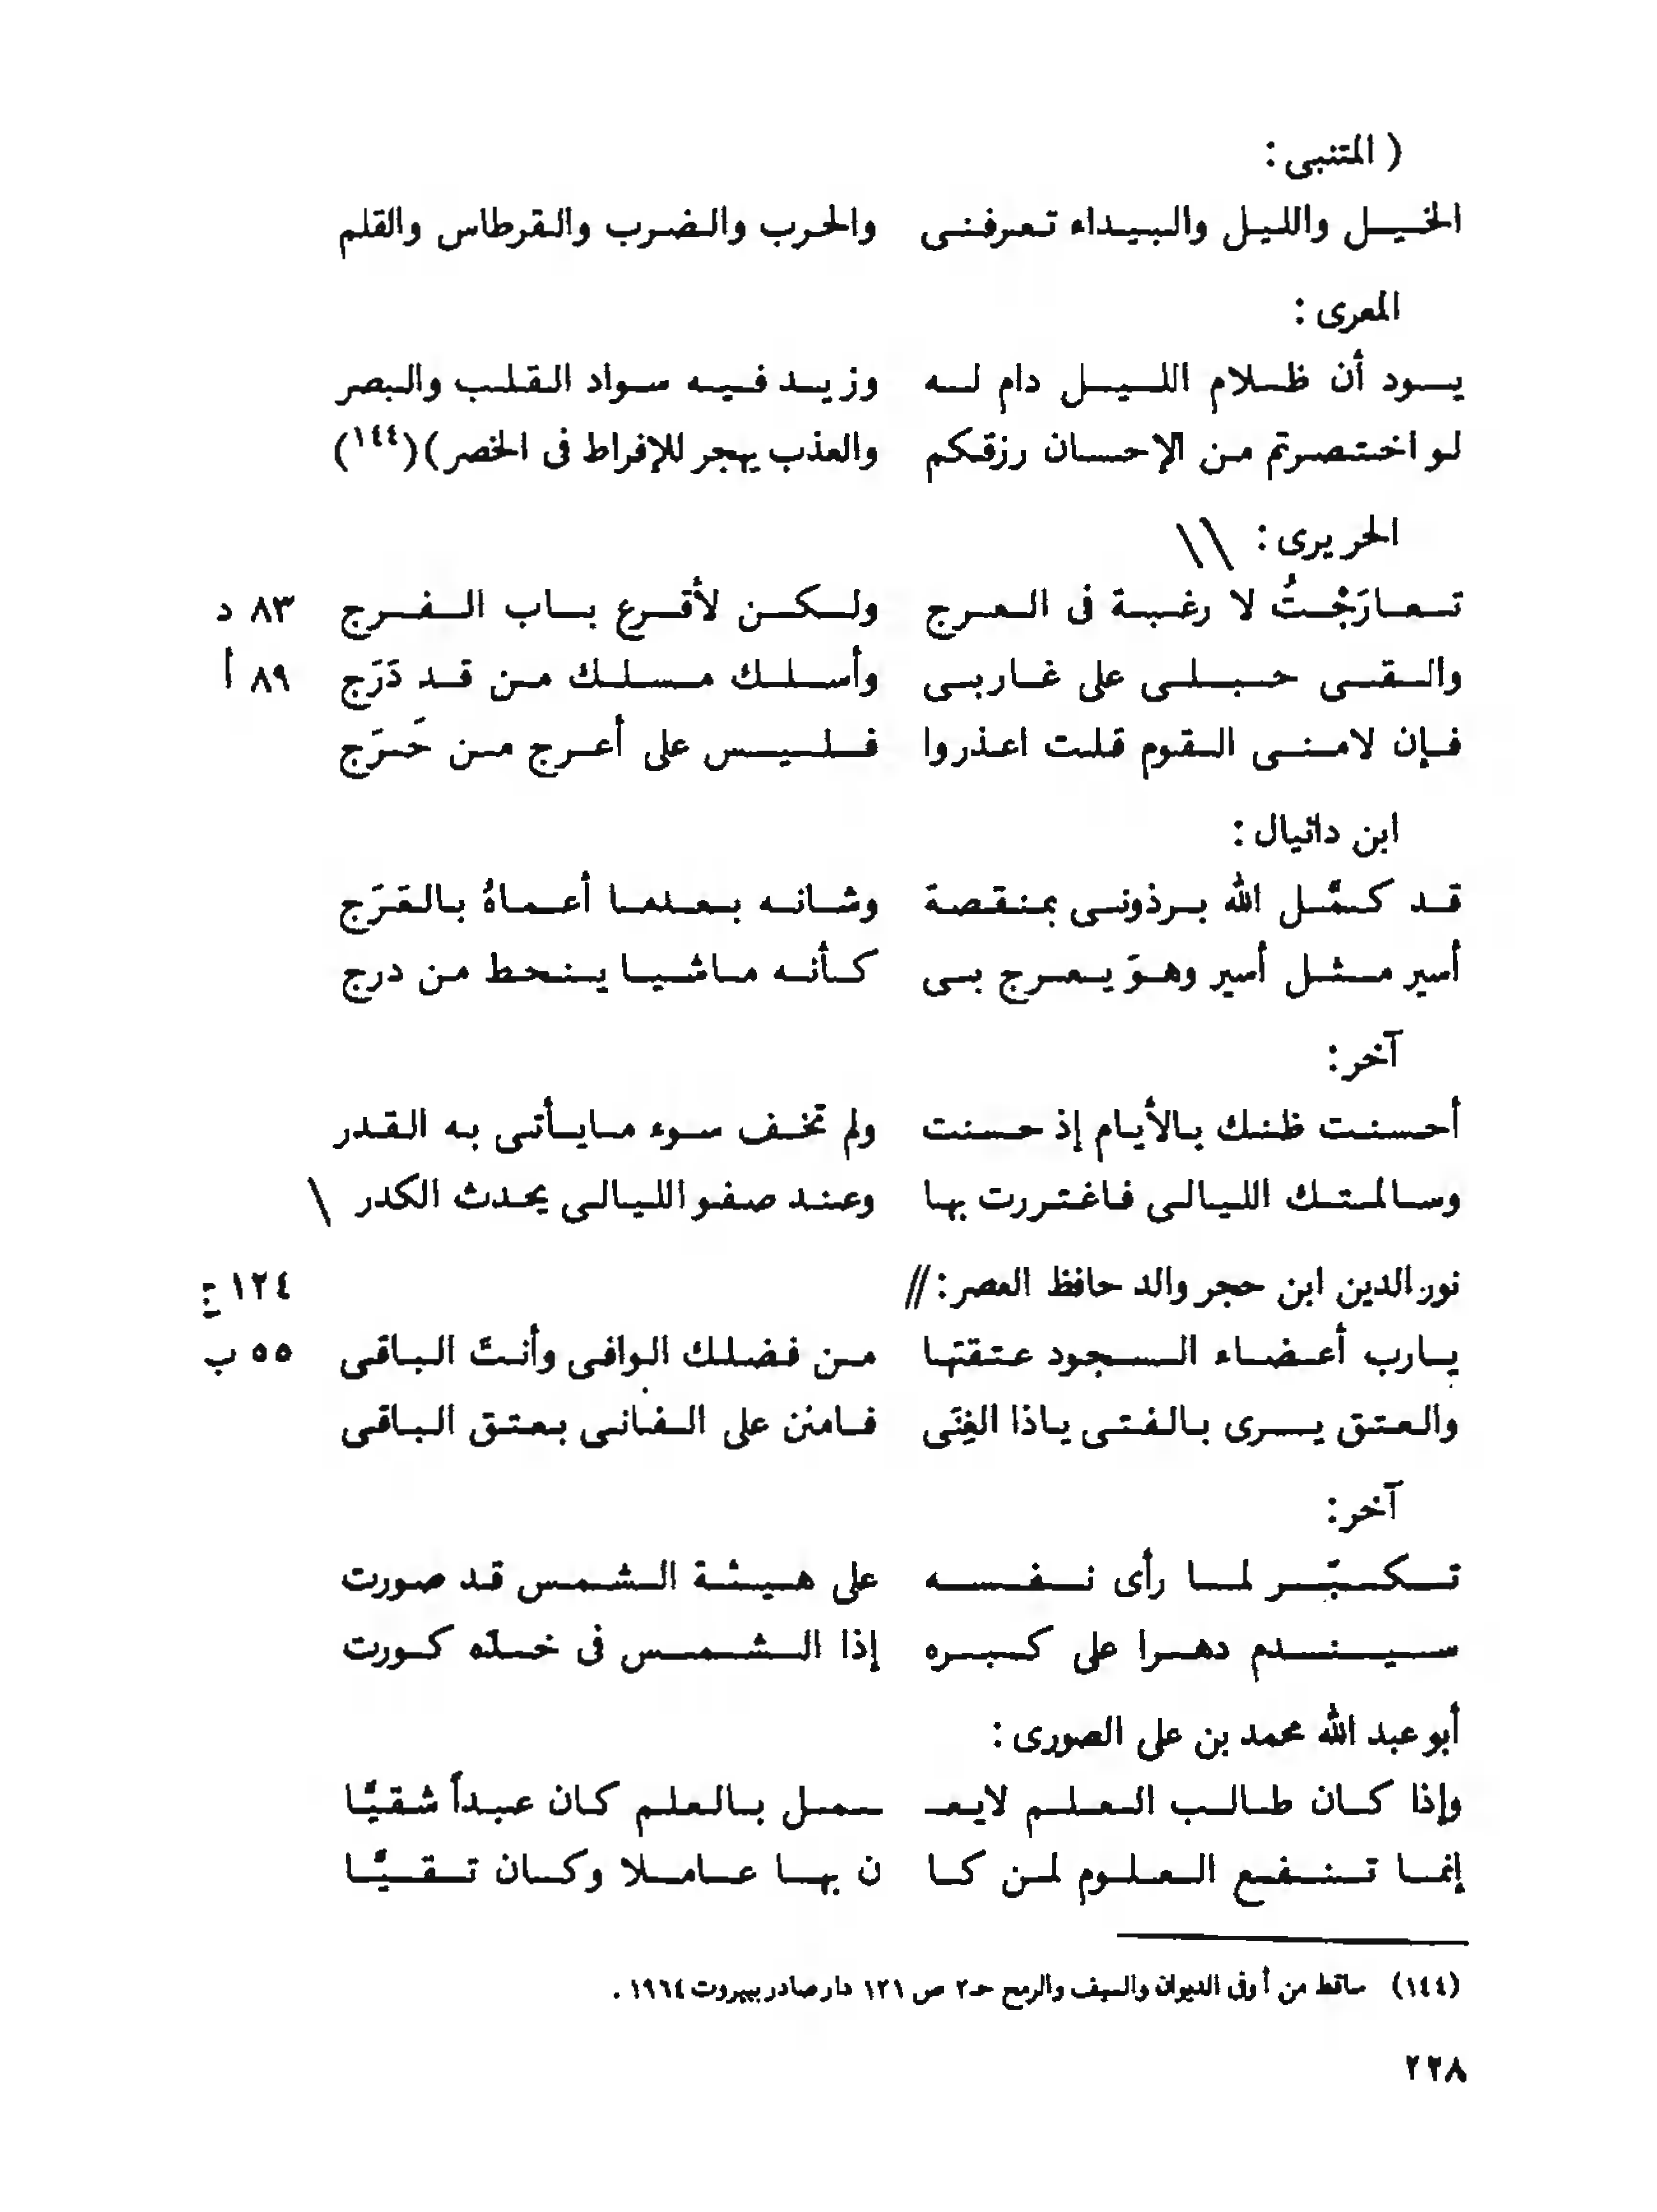 ( المتنبى :
الخيل والليل والبيداء تعرفنى والحرب والضرب والقرطاس والقلم
المعرى :
يود أن ظلام الليل دام له وزيد فيه سواد القلب والبصر
لو اختصرتم من الإحسان رزقكم والعذب يهجر للإفراط فى الخصر)(١٤٤)
الحريرى : \\
تعارَجْتُ لا رغبة فى العرج ولكن لأقرع باب الفرج ٨٣ د
والقى حبلى على غاربى وأسلك مسلك من قد دَرَج ٨٩ أ
فإن لامنى القوم قلت اعذروا فليس على أعرج من حَرَج
ابن دانيال :
قد كمَّل الله برذونى بمنقصة وشانه بعدما أعماهُ بالعَرَج
أسير مثل أسير وهوَ يعرج بى كأنه ماشيا ينحط من درج
آخر:
أحسنت ظنك بالأيام إذ حسنت ولم تخف سوء مايأتى به القدر
وسالمتك الليالى فاغتررت بها وعند صفو الليالى يحدث الكدر \
نور الدين ابن حجر والد حافظ العصر : // ١٢٤ ج
يارب أعضاء السجود عتقتها من فضلك الوافى وأنتَ الباقى ٥٥ ب
والعتق يسرى بالفتى ياذا الغِنَى فامنن على الفانى بعتق الباقى
آخر:
تكبّر لما رأى نفسه على هيئة الشمس قد صورت
سيندم دهرا على كبره إذا الشمس فى خدّه كورت
أبو عبد الله محمد بن على الصورى :
وإذا كان طالب العلم لايعـ ـمل بالعلم كان عبداً شقيَّا
إنما تنفع العلوم لمن كا ن بها عاملا وكان تقيَّا
(١٤٤) ساقط من أ وفى الديوان والسيف والرمح حـ٢ ص ١٢١ دار صادر ببيروت ١٩٦٤ .
٢٢٨